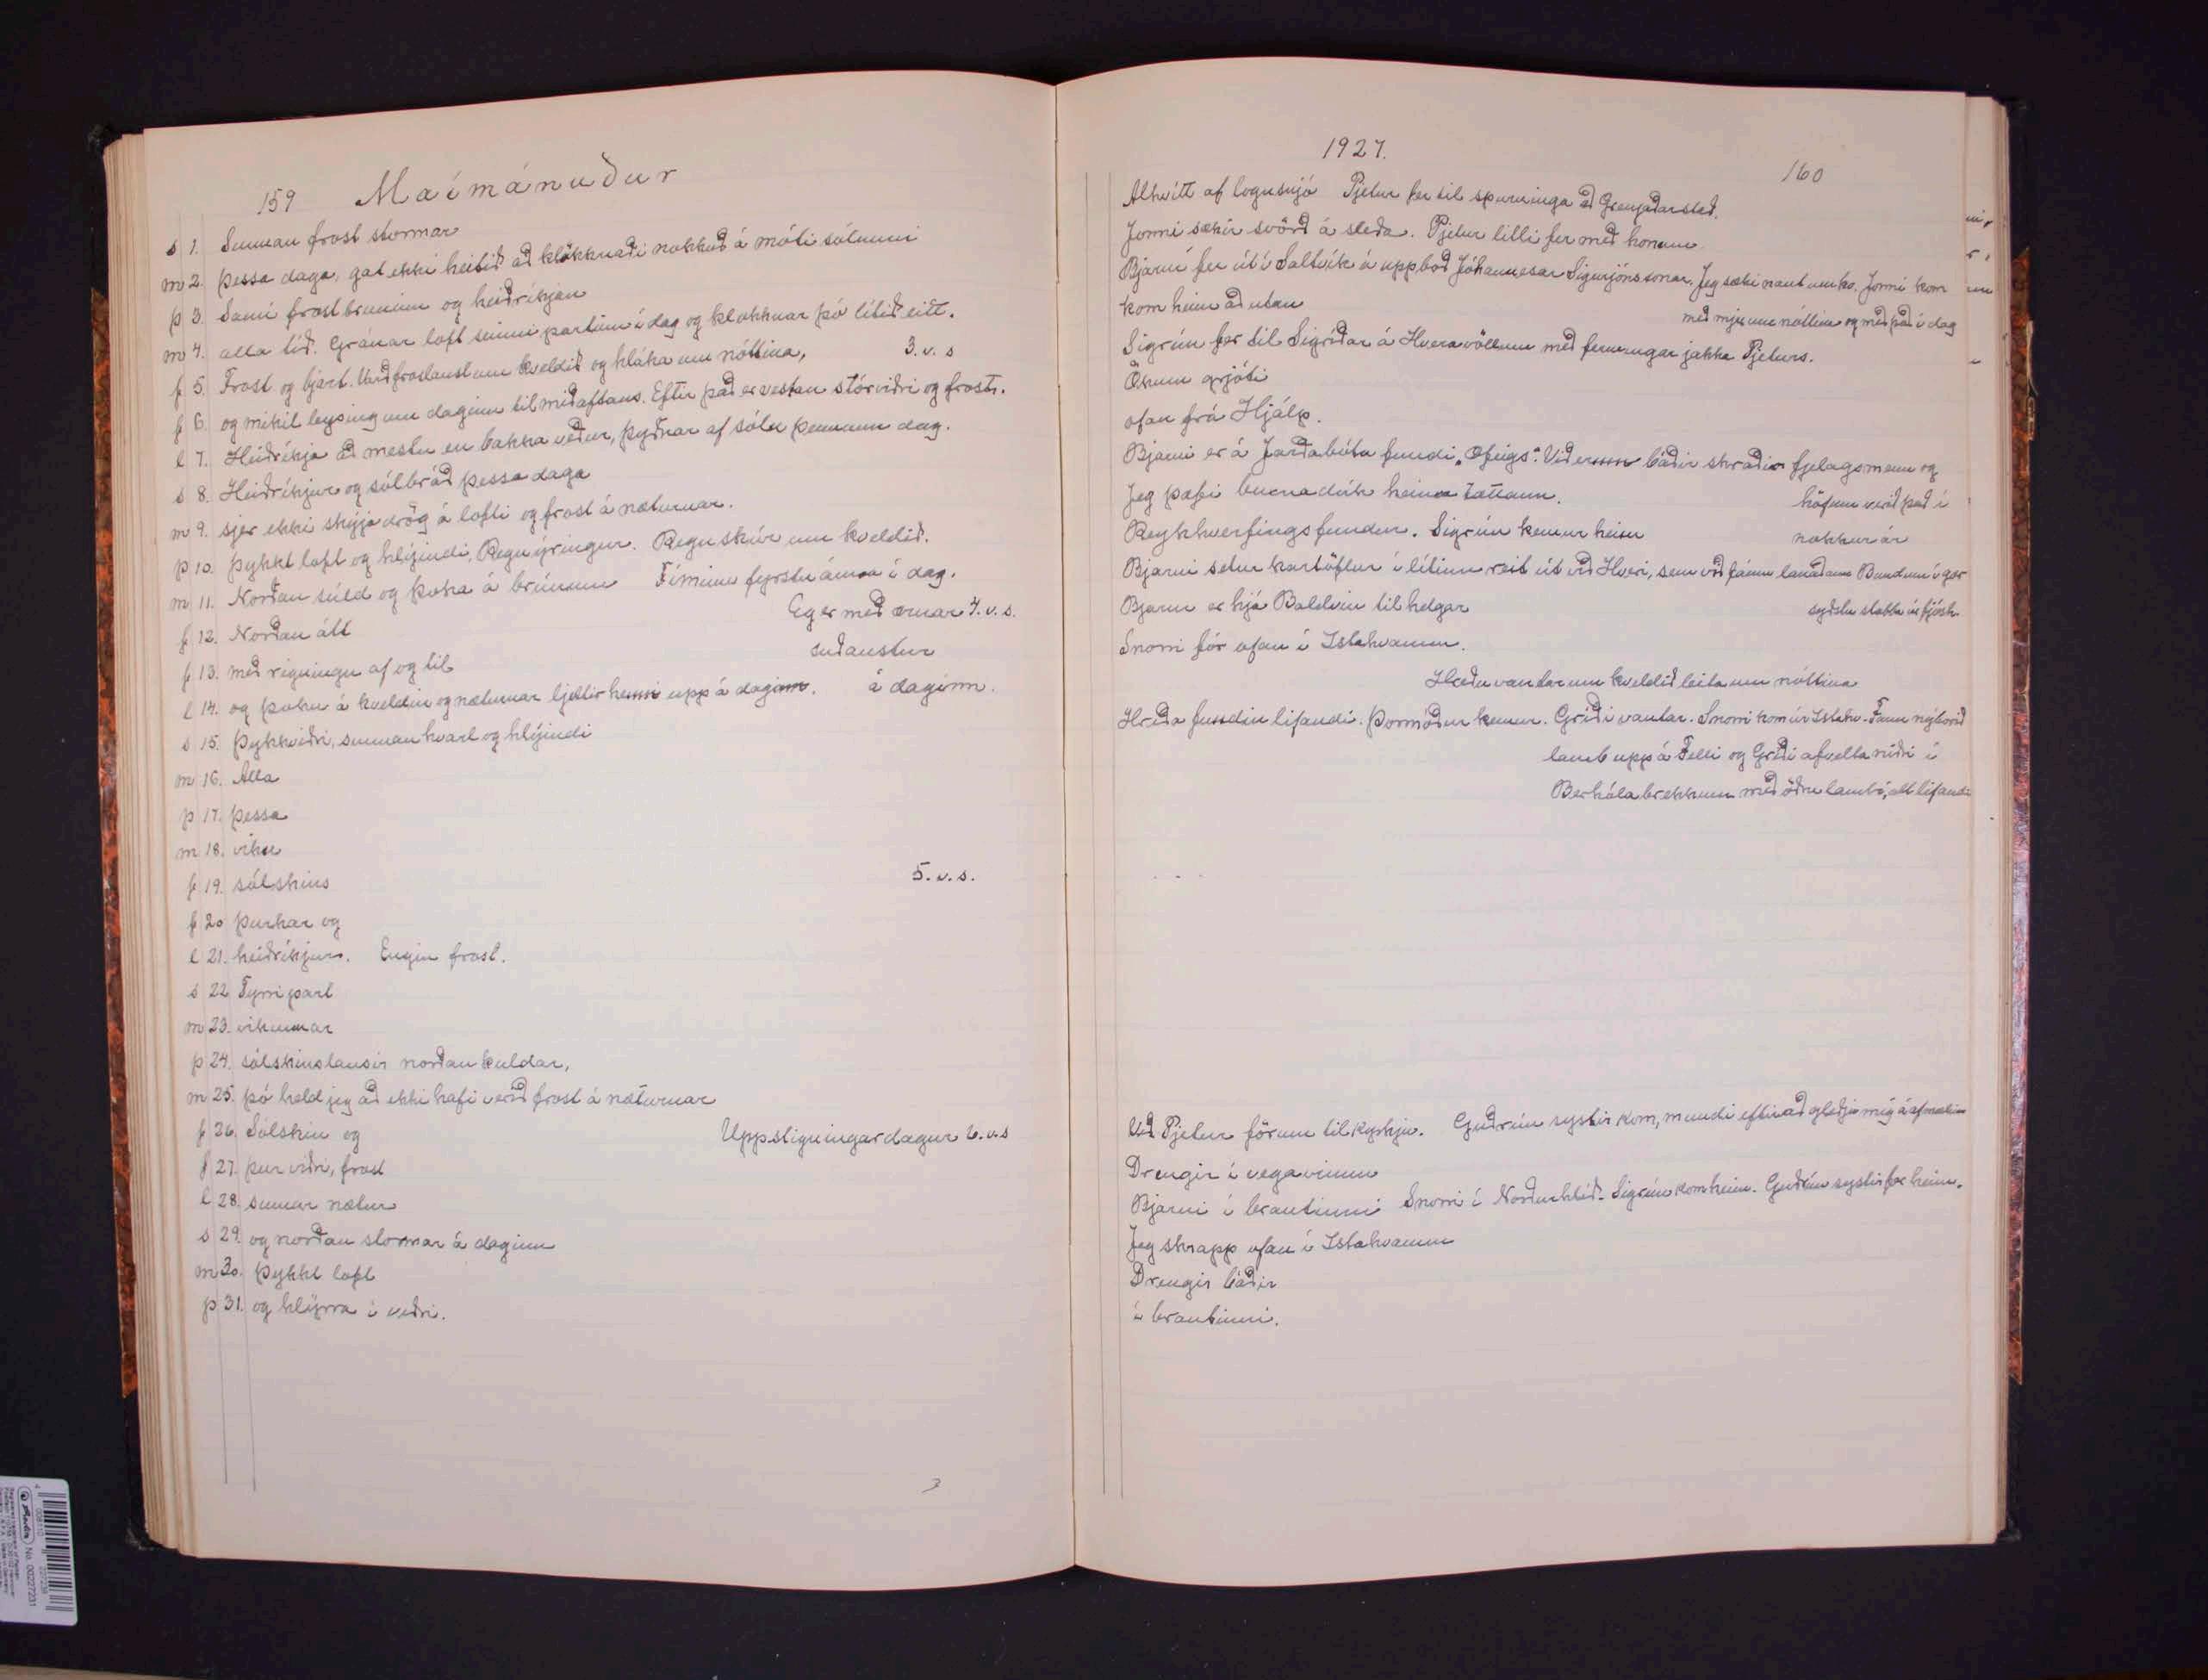 159 Maímánuður
s 1. Sunnan frost stormar
m 2. þessa daga, gat ekki heitið að klökknaði nokkuð á móti sólunni
þ 3. Sami frost bruninn og heiðríkjan
m 4. alla tíð. Gránar loft seinni partinn í dag og kloknar þó lítið eitt.
f 5. Frost og bjart. Varð frostlaust um kveldið og hláka um nóttina, 3. v. s
f 6. og mikil leysing um daginn til miðaftans. Eftir það er vestan stórviðri og frost.
l 7. Heiðríkja að mestu en bakka veður, þyðnar af sólu þennann dag.
s 8. Heiðríkjur og sólbráð þessa daga
m 9. sjer ekki skýjadrög á lofti og frost á næturnar.
þ 10. Þykkt loft og hlýindi, Regn ýringur. Regn skúr um kveldið.
m 11. Norðan súld og þoka á brúnum Fíminn fyrstu ærnar í dag.
f 12. Norðan átt Eg er með ærnar 4. v. s.
f 13. með rigningu af og til suðaustur
l 14. og þoku á kveldin og næturnar ljettir henni upp á daginn. á daginn.
s 15. Þykkviðri, sunnan hvarl og hlýindi
m 16. Alla
þ 17. þessa
m 18. viku
f 19. sólskins 5. v. s.
f 20 þurkar og
l 21. heiðríkjur. Engin frost.
s 22 Fyrri part
m 23. vikunnar
þ 24. sólskinslausir norðan kuldar,
m 25. þó held jeg að ekki hafi verið frost á næturnar
f 26. Sólskin og Uppstigningardagur 6. v. s
f 27. þur viðri, frost
l 28. sumar nætur
s 29. og norðan stormar á daginn
m 30. Þykkt loft
þ 31. og hlýrra í veðri.
1927.
160
Alhvítt af logusnjó Pjetur fer til spurninga að Grenjaðarstað.
Jonni sækir svörð á sleða. Pjetur litli fer með honum
Bjarni fer út í Saltvík á uppboð Jóhannesar Sigurjónssonar. Jeg sæki naut um kv. Jonni kom
kom heim að utan með mjer um nóttina og með það í dag
Sigrún fer til Sigríðar á Hveravöllum með fermingar jakka Pjeturs.
Ökum grjóti
ofan frá Hjálp.
Bjarni er á Jarðabóta fundi „Ófeigs“. Við erum báðir skráðir fjelagsmenn og
Jeg þæfi buxnadúk heima tættann. höfum verið það í
Reykhverfingsfundur. Sigrún kemur heim nokkur ár
Bjarni setur kartöflur í lítinn reit út við Hveri, sem við fáum
Bjarni er hjá Baldvin til helgar syðstu stabba úr fjósh.
Snorri fór ofan í Ystahvamm.
Hríðu vantar um kveldið leita um nóttina
Hríða fundin lifandi. Þormóður kemur. Gríði vantar. Snorri kom úr Ystahv. Fann nýborið
lamb upp á Felli og Gríði afvelta niðri í
Berhólabrekkum með öðru lambi, allt lifandi
Við Pjetur förum til kyrkju. Guðrún systir kom, mundi eftir að gleðja mig á afmælinu
Drengir í vegavinnu
Bjarni í brautinni Snorri í Norðurhlíð. Sigrún kom heim. Guðrún systir fer heim.
Jeg skrapp ofan í Ystahvamm
Drengir báðir
í brautinni.
No. 00227231